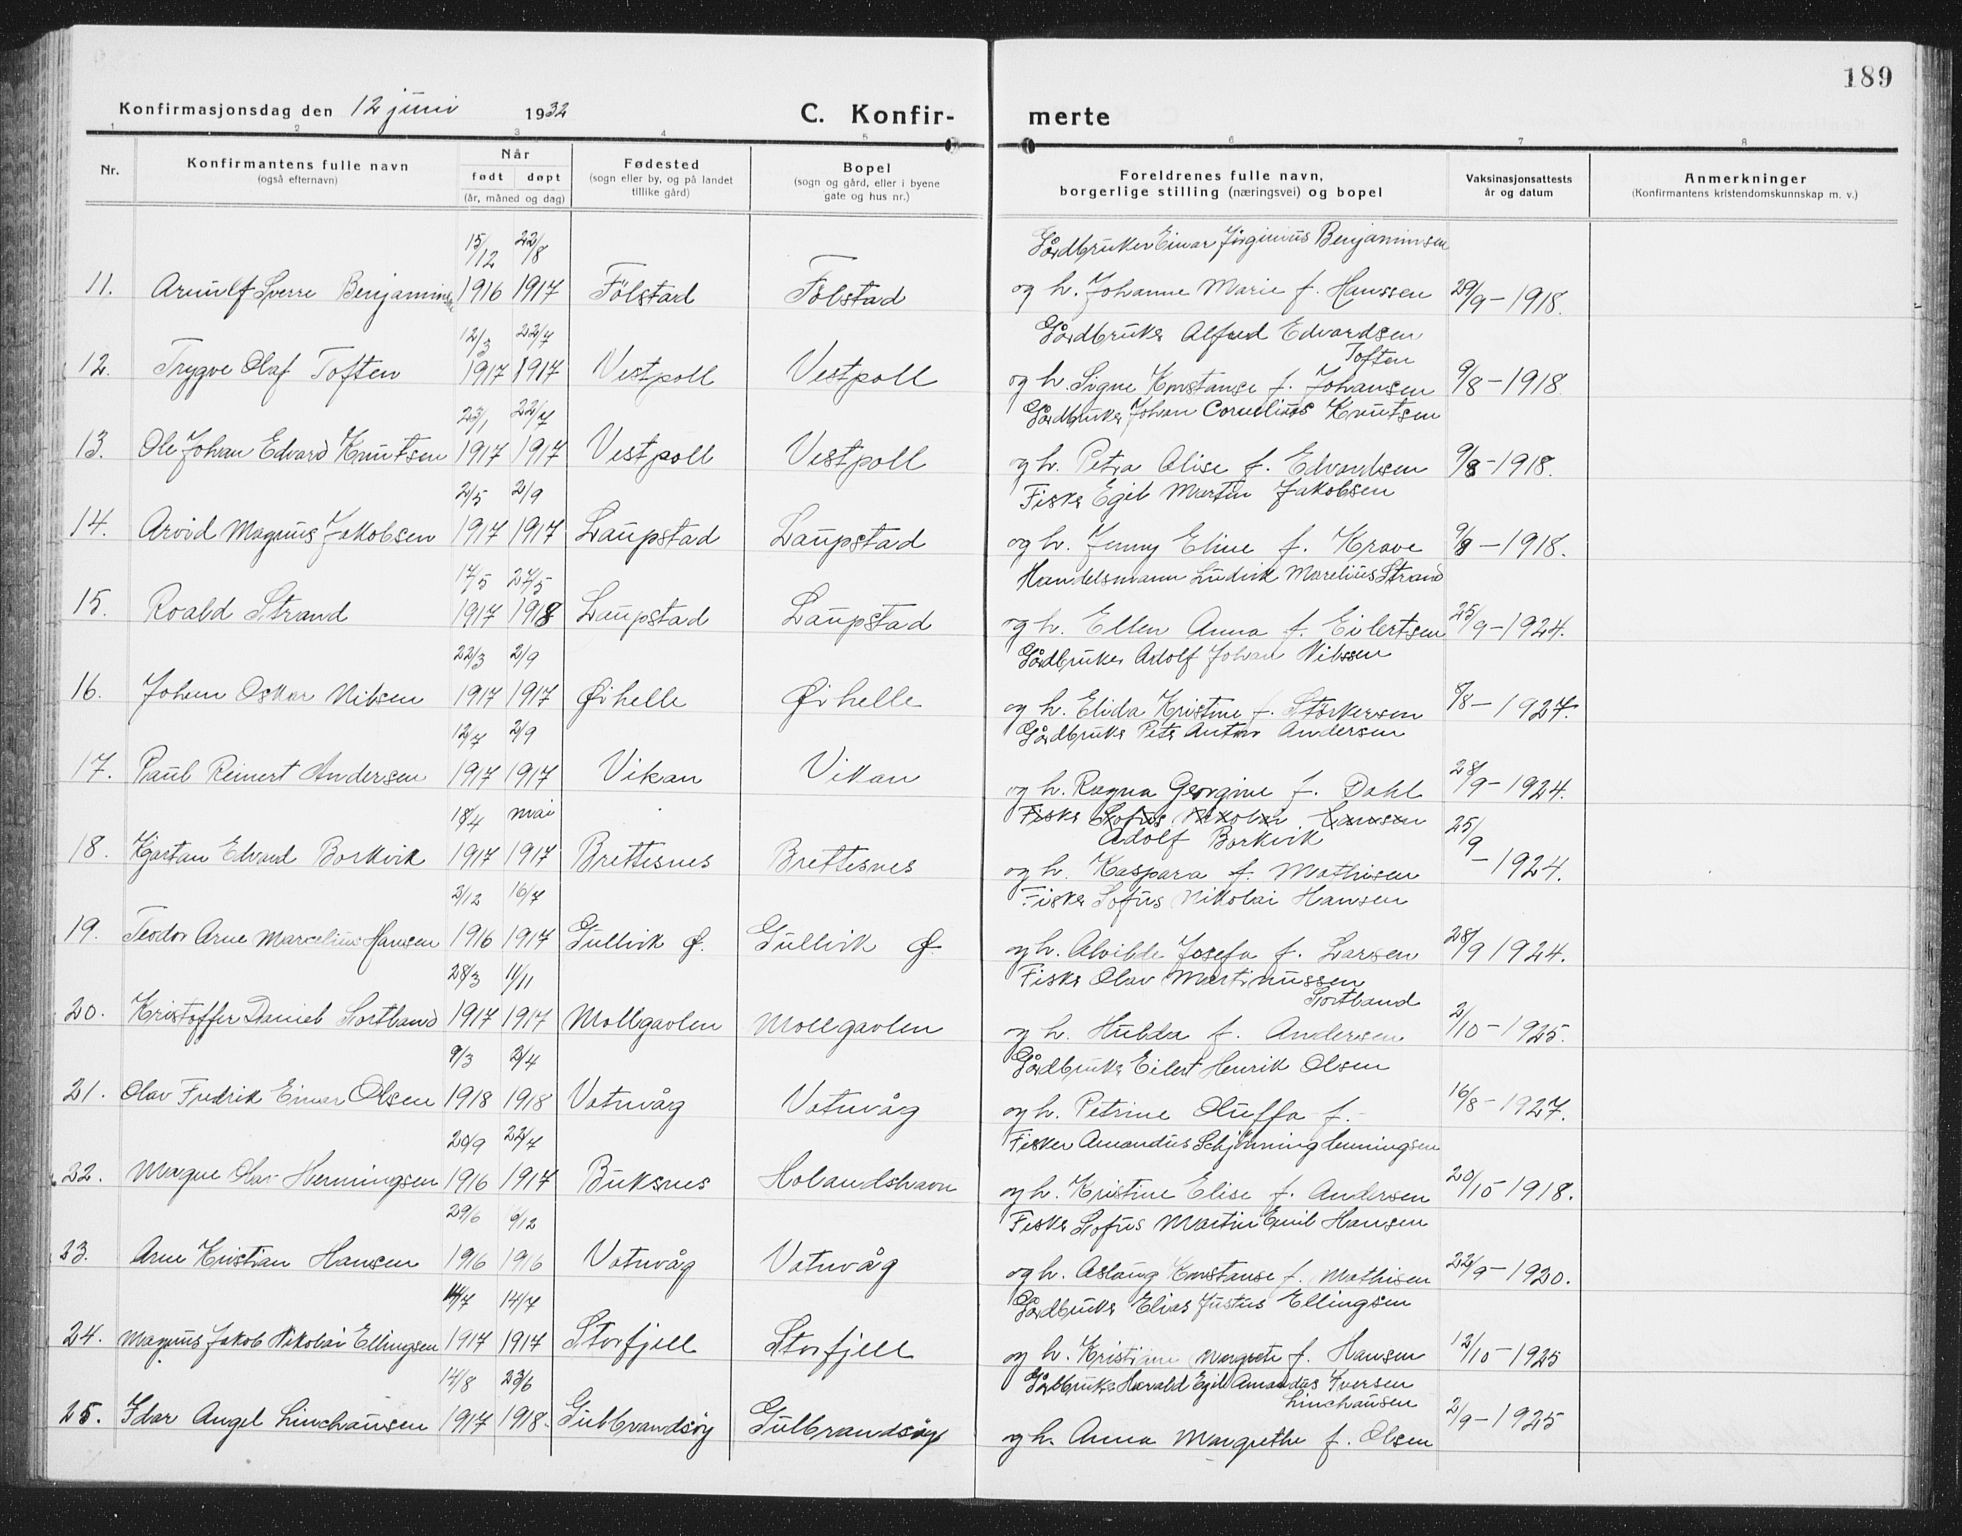 189
Konfirmasjonsdag den 12 juni 1932
C. Konfir- merte
1 2 3 4 5 6 7 8
Nr.
Konfirmantens fulle navn
(også efternavn)
Når
født døpt
(år, måned og dag)
Fødested
(sogn eller by, og på landet
tillike gård)
Bopel
(sogn og gård, eller i byene
gate og hus nr.)
Foreldrenes fulle navn,
borgerlige stilling (næringsvei) og bopel
Vaksinasjonsattests
år og datum
Anmerkninger
(Konfirmantens kristendomskunnskap m. v.)
15/12 22/8 Gårdbruker Einar Jørginius Benjaminsen
11. Arnulf Sverre Benjaminsen 1916 1917 Fölstad Fölstad og h. Johanne Marie f. Hanssen 29/9-1918.
12/3 22/7 Gårdbruker Alfred Edvardsen
Toften
12. Trygve Olaf Toften 1917 1917 Vestpoll Vestpoll og h. Signe Konstanse f. Johansen 9/8-1918
23/1 22/7 Gårdbruker Johan Cornelius Knutsen
13. Ole Johan Edvard Knutsen 1917 1917 Vestpoll Vestpoll og h. Petra Alise f. Edvardsen 9/8-1918.
2/5 2/9 Fisker Egil Martin Jakobsen
14. Arvid Magnus Jakobsen 1917 1917 Laupstad Laupstad og h. Jenny Eline f. Krave 9/8-1918.
17/5 27/5 Handelsmann Ludvik Marelius Strand
15. Roald Strand 1917 1918 Laupstad Laupstad og h. Ellen Anna f. Eilertsen 25/9-1924.
22/3 2/9 Gårdbruker Adolf Johan Nilssen
16. Johan Oskar Nilsen 1917 1917 Øihelle Øihelle og h. Elida Kristine f. Störkersen 8/8-1927.
12/7 2/9 Gårdbruker Peter Anton Andersen
17. Paul Reinert Andersen 1917 1917 Vikan Vikan og h. Ragna Georgine f. Dahl 28/9-1924.
18/4 mai Fisker Sofus Nikolai Hansen
Adolf Borkvik
18. Kjartan Edvard Borkvik 1917 1917 Brettesnes Brettesnes og h. Kaspara f. Mathisen 25/9-1924.
2/12 16/7 Fisker Sofus Nikolai Hansen
19. Teodor Arne Marcelius Hansen 1916 1917 Gullvik Ø. Gullvik Ø. og h. Alvilde Josefa f. Larsen 28/9 1924.
28/3 11/11 Fisker Olav Martinussen
Sortland
20. Kristoffer Daniel Sortland 1917 1917 Mollgavlen Mollgavlen og h. Hulda f. Andersen 2/10-1925.
9/3 2/4 Gårdbruker Eilert Henrik Olsen
21. Olav Fredrik Einar Olsen 1918 1918 Vatnvåg Vatnvåg og h. Petrine Oluffa f. 16/8-1927.
20/9 22/7 Fisker Amandus Schjönning Henningsen
22. Magne Olav Henningsen 1916 1917 Buksnes Holandshavn og h. Kristine Elise f. Andersen 20/10-1918.
29/6 6/12 Fisker Sofus Martin Emil Hansen
23. Arne Kristian Hansen 1916 1916 Vatnvåg Vatnvåg og h. Aslaug Konstanse f. Mathisen 22/9-1920.
14/7 Gårdbruker Elias Justus Ellingsen
24. Magnus Jakob Nikolai Ellingsen 1917 1917 Storfjell Storfjell og h. Kristiane Margrete f. Hansen 12/10-1925
14/8 23/6 Gårdbruker Harald Egil Amandus Iversen
Linchausen
25. Idar Angel Linchausen 1917 1918. Gulbrandsöy Gulbrandsöy og h. Anna Margrethe f. Olsen 2/9-1925